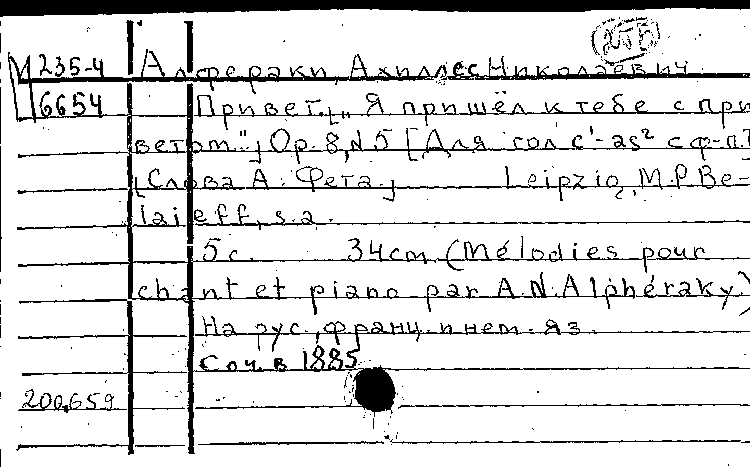 М 235-4 Алфераки, Ахиллес Николаевич.
6654 Привет. [„Я пришёл к тебе с при
ветом"] Op. 8, N 5 [Для гол. c¹-as² с ф-п.]
[Слова А. Фета.] Leipzig, M.P. Be-
laieff, s.a.
5 с. 34 cm. (Mélodies pour
chant et piano par A.N. Alphéraky)
На рус., франц. и нем. яз.
Соч. в 1885
200,659